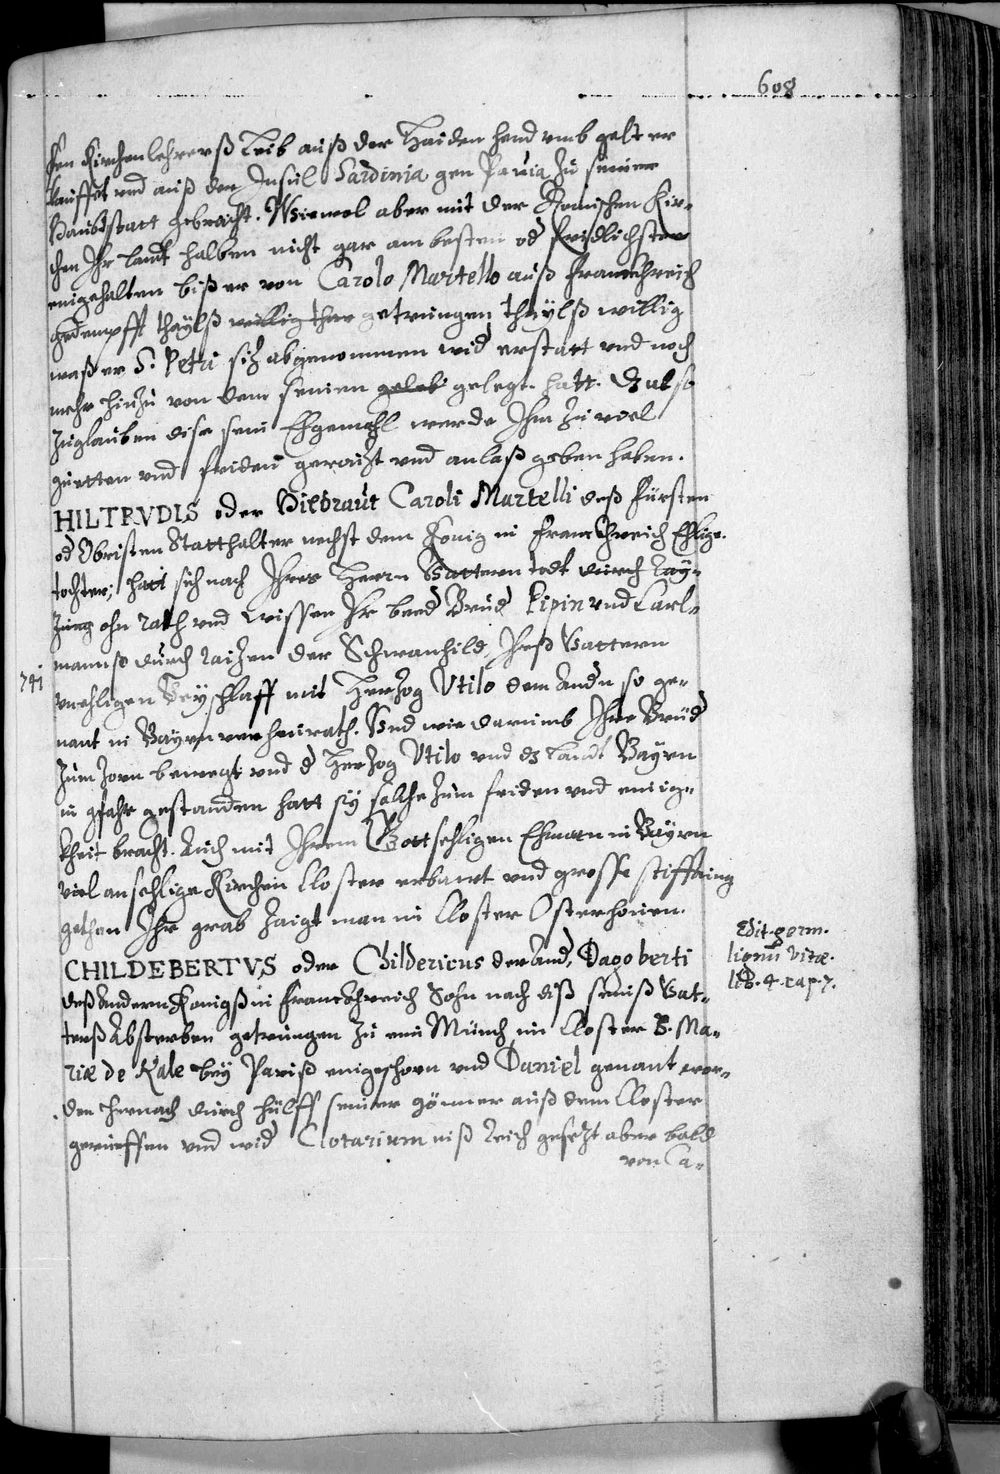 608
sen Kirchenlehrerß Leib auß der Haiden hend umb gelt er
kaufft und auß der Insul Sardinia gen Pavia zu seiner
Haubtstatt gebracht. Wiewol aber mit der Romischen Kir-
chen Ihr landt halben nicht gar am besten od fridlichsten
eingehalten biß er von Carolo Martello auß Franckhreich
gedempfft thaylß willig thae getrungen thaylß willig
waß er S. Petri siz abgenommen wid erstatt und noch
mehr hinzu von dem seinen geleb gelegt hatt. D also
zuglauben dise sein Ehgemahl werde Ihm zu viel
guetten und friden geraizt und anlaß geben haben.
HILTRVDIS oder Hiltraut Caroli Martelli deß fürsten
od Obristen Statthalter nechst dem Konig in Franckhreich Ehlige
tochter, hatt sich nach Ihres Herrn Vattern todt durch Lay-
zung ohn rath und wissen Ihr beed Brüd Pipin und Carl-
mannß durch raizen der Schwanhild, Ihreß Vattern
741
unehligen Beyschlaff mit Herzog Vtilo dem Andn so ge-
nant in Bayrn verheirath. Und wie darumb Ihre Brüd
zum Zorn bewegt und d Herzog Vtilo und dz landt Bayrn
in gfahr gestanden hatt sy solche zum friden und einig-
kheit bracht. Auch mit Ihrem Gottsehligen Ehman in Bayrn
viel ansehlige Kirchen Closter erbawt und grosse stifftung
gethan Ihr grab zaigt man im Closter Osterhouen.
CHILDEBERTVS oder Childericus der And, Dagoberti
deß Andern Konigß in Franckhreich Sohn nach diß seineß Vat-
terß Absterben getrungen zu eim Münch im Closter B. Ma-
riæ de Kale bey Pariß eingeschorn und Daniel genant wor-
den hernach durch hülff seiner gönner auß dem Closter
gerueffen und wid Clotarium inß Reich gesezt aber bald
von Ca-
Edit. germ.
lignu Vitæ.
lib. 4. cap. 7.